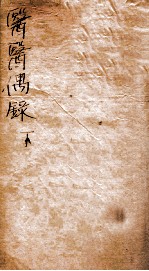 醫醫偶錄
上